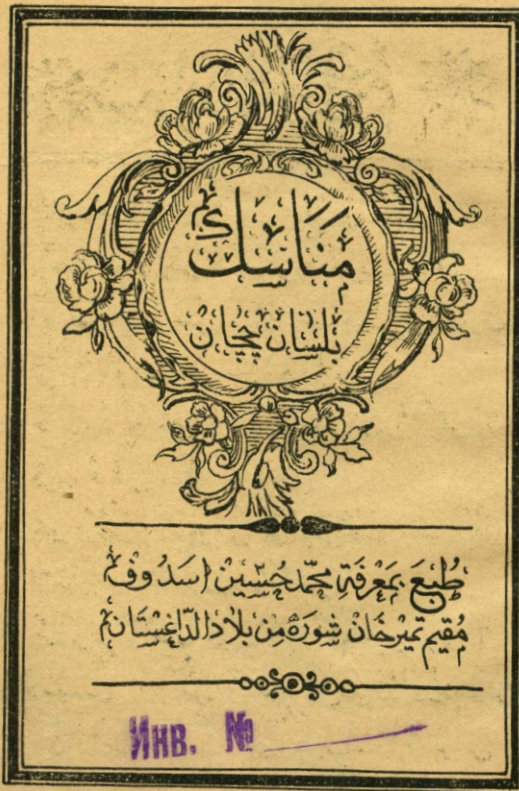 مَنَاسِك
بلسان چچان
طُبِعَ بمَعْرِفَةِ محمّد حُسَيْن اسَدُوف
مُقِيم تَمِيرخَان شُورَهْ مِن بلاد الدَّاغِسْتَان
Инв. №